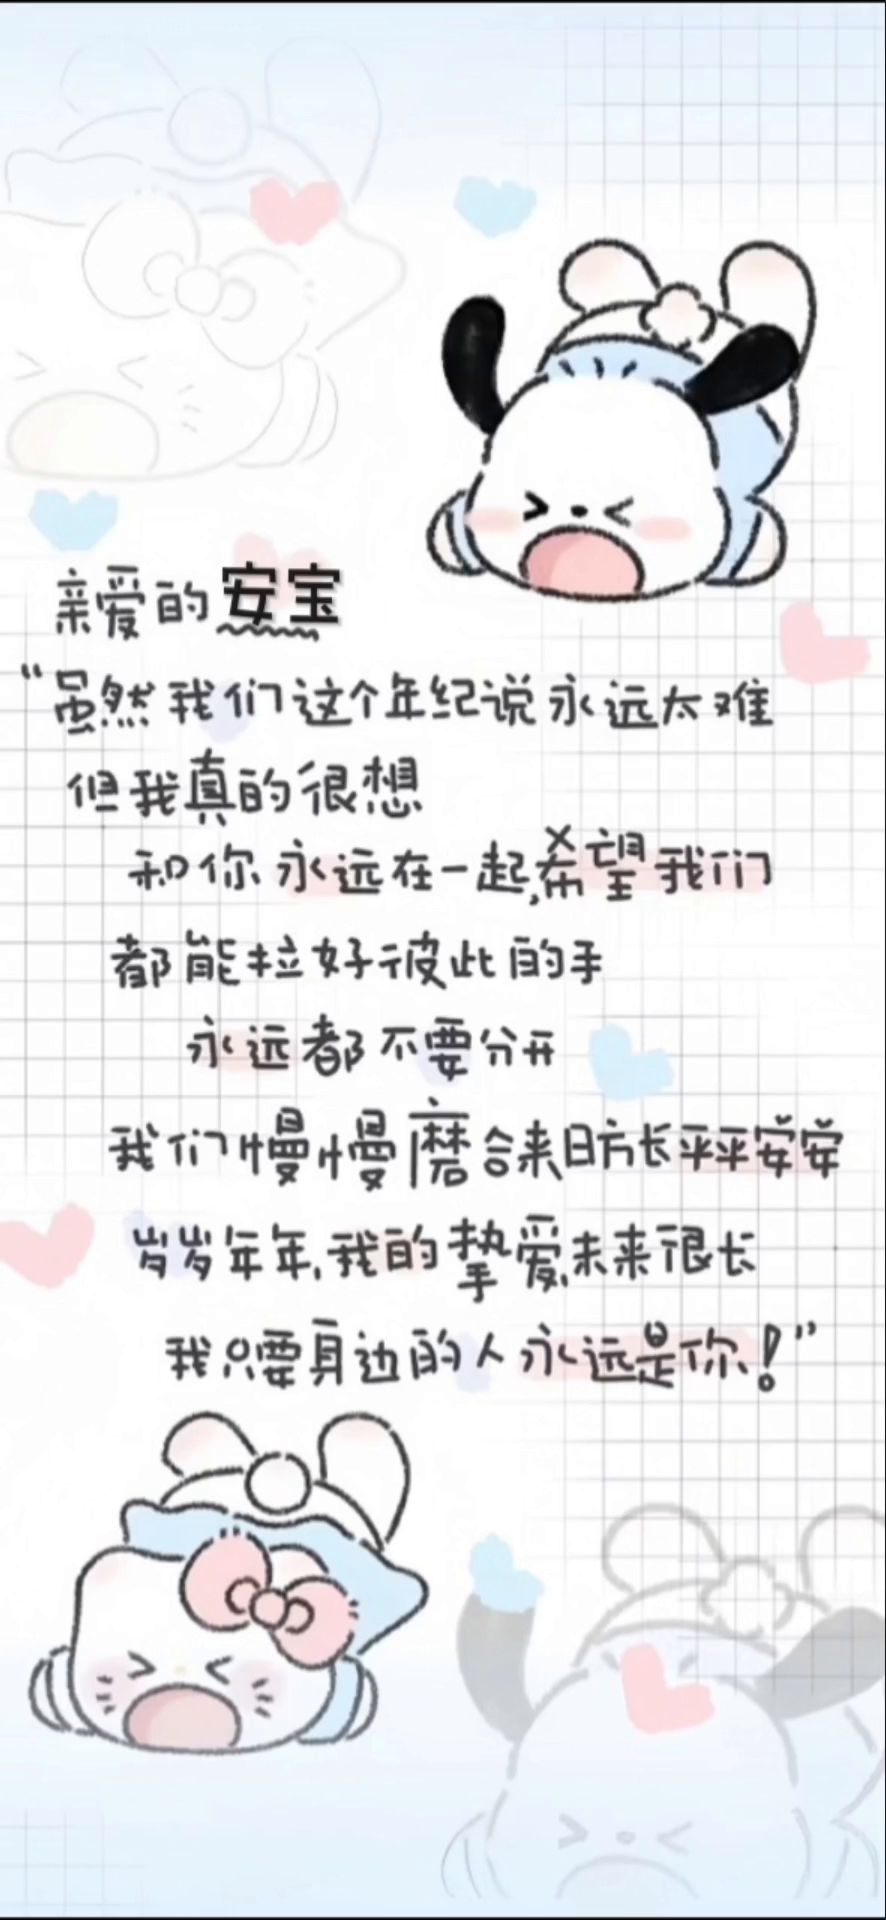 亲爱的安宝
“虽然我们这个年纪说永远太难
但我真的很想
和你永远在一起,希望我们
都能拉好彼此的手
永远都不要分开
我们慢慢磨合来日方长平平安安
岁岁年年,我的挚爱,未来很长
我只要身边的人永远是你!”